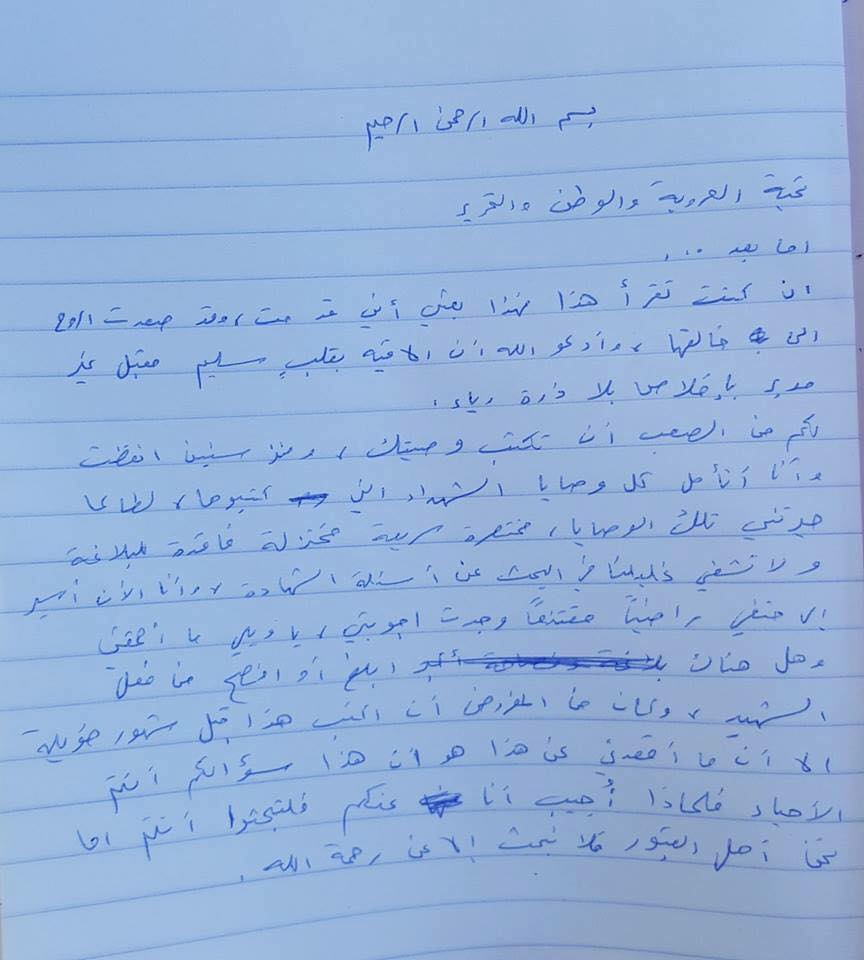 بسم الله الرحمن الرحيم
تحية العروبة والوطن والتحرير
اما بعد ...
ان كنت تقرأ هذا فهذا يعني أني قد مت، وقد صعدت الروح
الى خالقها، وأدعو الله أن الاقيه بقلبٍ سليم مقبل غير
مدبر بإخلاص بلا ذرة رياء.
لكم من الصعب أن تكتب وصيتك، ومنذ سنين انقضت
وأنا أتأمل كل وصايا الشهداء كتبوها، لطالما
حيرتني تلك الوصايا، مختصرة سريعة مختزلة فاقدة للبلاغة
ولا تشفي غليلنا في البحث عن أسئلة الشهادة، وأنا الآن أسير
إلى حتفي راضياً مقتنعاً وجدت اجوبتي، يا ويلي ما أحمقني
وهل هناك ابلغ أو افصح من فعل
الشهيد، وكان من المفروض أن اكتب هذا قبل شهور طويلة
الا أن ما أقعدني عن هذا هو أن هذا سؤالكم أنتم
الأحياء فلماذا أُجيب أنا عنكم فلتبحثوا أنتم اما
نحن أهل القبور فلا نبحث إلا عن رحمة الله.